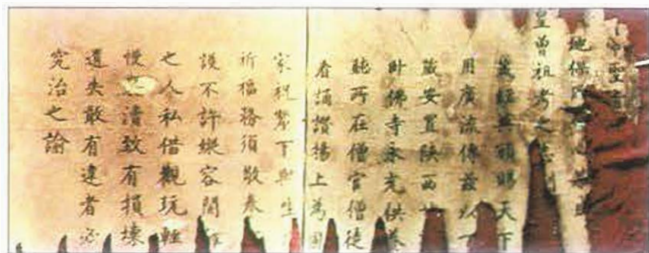 帝聖旨
地保民之心恭成
皇曾祖考之志
藏經典頒賜天下
用廣流傳茲以一
藏安置陝西甘
卧佛寺永充供養
聽所在僧官僧徒
看誦讚揚上為國
家祝釐下與生
祈福務須敬奉
護不許縱容閒雜
之人私借觀玩輕
慢褻瀆致有損壞
遺失敢有違者必
究治之諭